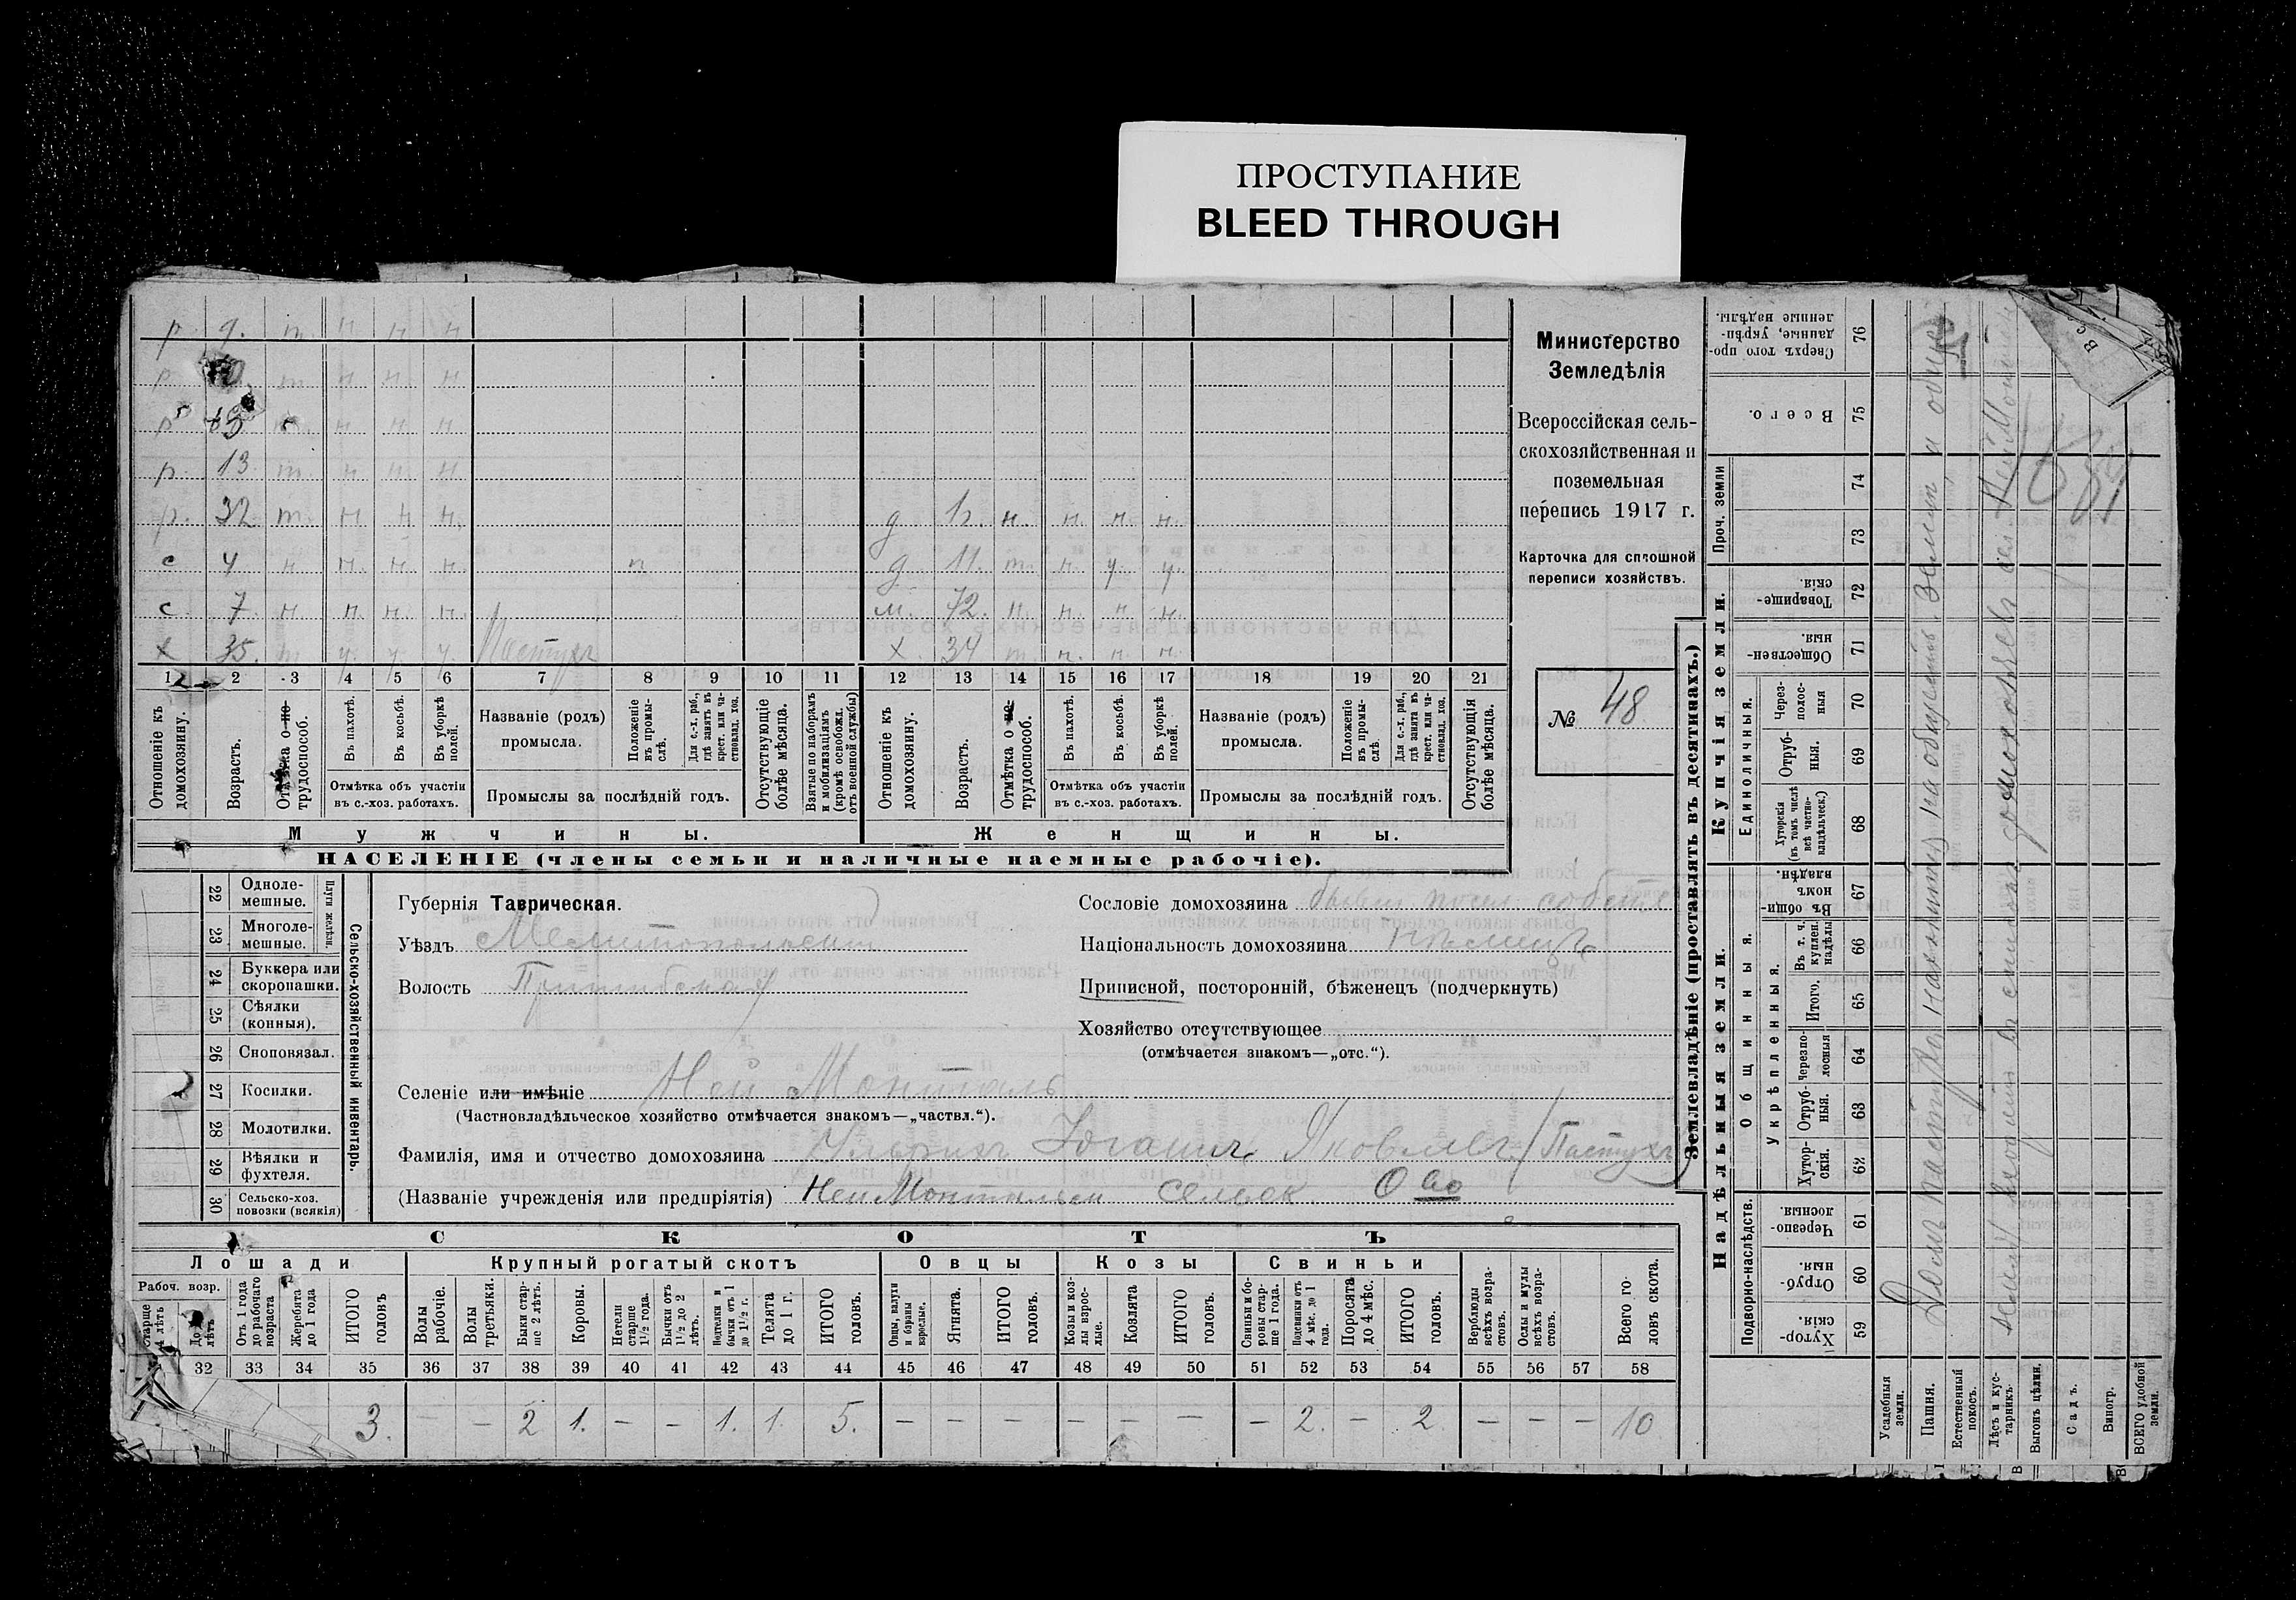 ПРОСТУПАНИЕ
BLEED THROUGH
р. 9. т. н н н
р. 10 т. н. н. н
р 13 т. н н н
р. 13. т. н. н. н
р. 32 т. н. н н. д 1½. н. н. н. н.
с 4 н н. н. н. п д. 11. т. н. у. у.
с. 7. н н. н. н. м. 72. н. н. н н.
х 35. т у. у. у. Пастухъ х. 34 т. н. н. н.
1 2 3 4 5 6 7 8 9 10 11 12 13 14 15 16 17 18 19 20 21
Отношеніе къ домохозяину.
Возрастъ.
Отмѣтка о не-трудоспособ.
Въ пахотѣ.
Въ косьбѣ.
Въ уборкѣ полей.
Отмѣтка объ участіи въ с.-хоз. работахъ.
Названіе (родъ) промысла.
Положеніе въ промыслѣ.
Для с.-х. раб., гдѣ занятъ въ крест. или частновлад. хоз.
Промыслы за послѣдній годъ.
Отсутствующіе болѣе мѣсяца.
Взятые по наборамъ и мобилизаціямъ (кромѣ освобожд. отъ военной службы)
Отношеніе къ домохозяину.
Возрастъ.
Отмѣтка о не-трудоспособ.
Въ пахотѣ.
Въ косьбѣ.
Въ уборкѣ полей.
Отмѣтка объ участіи въ с.-хоз. работахъ.
Названіе (родъ) промысла.
Положеніе въ промыслѣ
Для с.-х. раб., гдѣ занята въ крест. или частновлад. хоз.
Промыслы за послѣдній годъ.
Отсутствующія болѣе мѣсяца.
Мужчины.
Женщины.
НАСЕЛЕНІЕ (члены семьи и наличные наемные рабочіе).
Министерство
Земледѣлія
Всероссійская сель-
скохозяйственная и
поземельная
перепись 1917 г.
Карточка для сплошной
переписи хозяйствъ.
№ 48
22 Одноле-мешные.
23 Многоле-мешные.
Плуги желѣзн.
24 Буккера или скоропашки.
25 Сѣялки (конныя).
26 Сноповязал.
27 Косилки.
28 Молотилки.
29 Вѣялки и фухтеля.
30 Сельско-хоз. повозки (всякія)
Сельско-хозяйственный инвентарь.
Губернія Таврическая.
Уѣздъ Мелитопольскій
Волость Пришибская
Селеніе или имѣніе Ней Монталь
(Частновладѣльческое хозяйство отмѣчается знакомъ—„частвл.“).
Фамилія, имя и отчество домохозяина Ульрихъ Іоганъ Яковлевъ (Пастухъ)
(Названіе учрежденія или предпріятія) НейМонтальск Сельск О во
Сословіе домохозяина бывш посел собств
Національность домохозяина нѣмецъ
Приписной, посторонній, бѣженецъ (подчеркнуть)
Хозяйство отсутствующее
(отмѣчается знакомъ—„отс.“).
СКОТЪ
Лошади
Крупный рогатый скотъ
Овцы
Козы
Свиньи
Рабоч. возр.
Старше 4 лѣтъ
До 4 лѣтъ
Отъ 1 года до рабочаго возраста
Жеребята до 1 года
ИТОГО головъ
Волы рабочіе.
Волы третьяки.
Быки стар-ше 2 лѣтъ.
Коровы.
Нетели старше 1½ года.
Бычки отъ 1½ до 2 лѣтъ.
Недтелки и бычки отъ 1 до 1½ г.
Телята до 1 г.
ИТОГО головъ.
Овцы, валухи и бараны взрослые.
Ягнята.
ИТОГО головъ.
Козы и коз-лы взрос-лые.
Козлята
ИТОГО головъ.
Свиньи и бо-ровы стар-ше 1 года.
Подсвинки отъ 4 мѣс. до 1 года.
Поросята до 4 мѣс.
ИТОГО головъ.
Верблюды всѣхъ возра-стовъ.
Ослы и мулы всѣхъ возра-стовъ.
Всего го-ловъ скота.
32 33 34 35 36 37 38 39 40 41 42 43 44 45 46 47 48 49 50 51 52 53 54 55 56 57 58
3. — — 2 1. — — 1. 1. 5. — — — — — — — 2. — 2 — — — 10
Землевладѣніе (проставлять въ десятинахъ.)
Надѣльныя земли.
Купчія земли.
Проч. земли
Подворно-наслѣдств.
Общинныя.
Укрѣпленныя.
Единоличныя.
59 Хутор-скія.
60 Отруб-ныя.
61 Черезпо-лосныя
62 Хутор-скія.
63 Отруб-ныя.
64 Черезпо-лосныя
65 Итого.
66 Въ т. ч. куплен. надѣлы
67 Въ общин-номъ владѣн.
68 Хуторскія (въ томъ числѣ всѣ частно-владѣльческ.)
69 Отруб-ныя.
70 Через-полос-ныя
71 Обществен-ныя
72 Товарище-скія.
73
74
75 Всего.
76 Сверхъ того про-данные, укрѣп-ленные надѣлы.
Усадебныя земли.
Пашня.
Естественный покосъ.
Лѣсъ и кус-тарникъ.
Выгонъ цѣлин.
Садъ.
Виногр.
ВСЕГО удобной земли.
Домъ пастуха находится на общественной земли и
входитъ въ списокъ домохозяевъ сел. НейМонталь